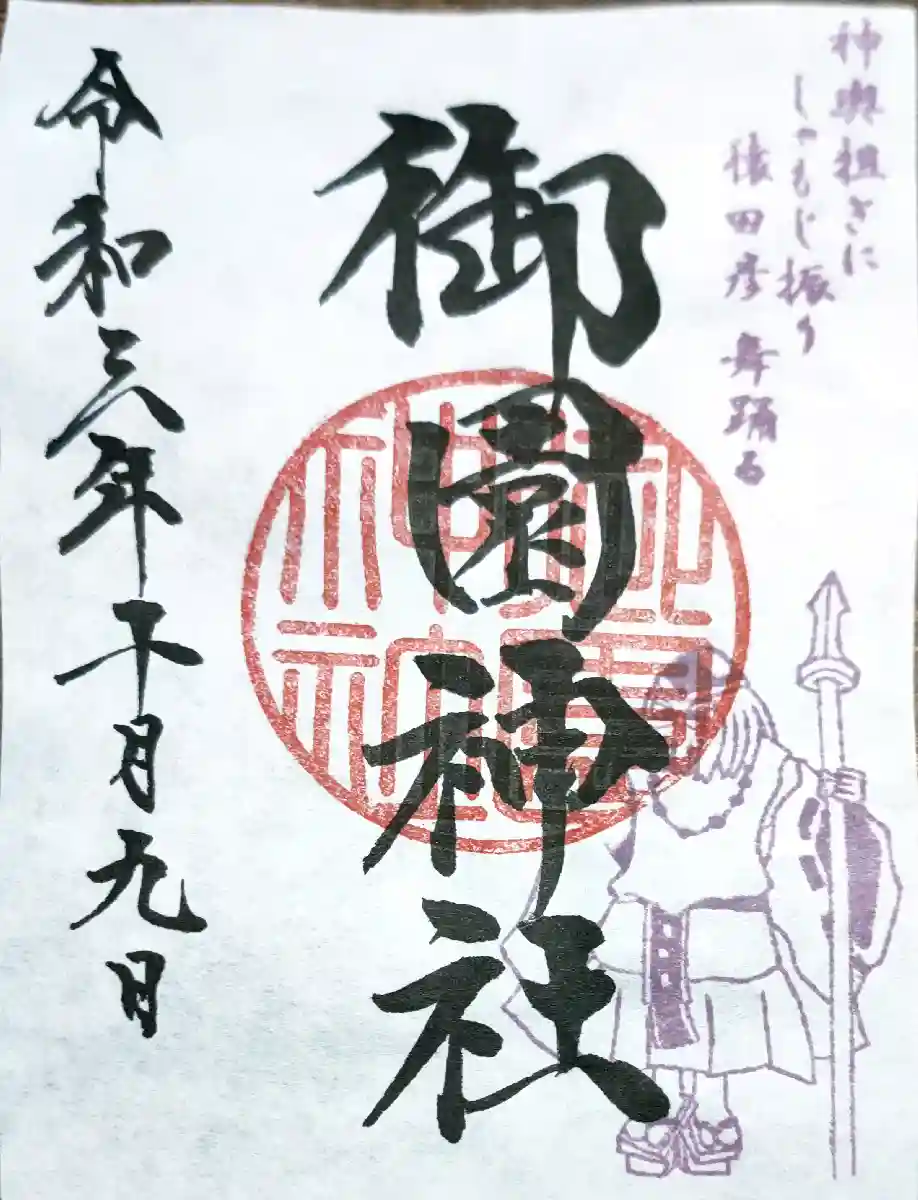 神輿担ぎに
しゃもじ振り
猿田彦舞踊る
御園神社
令和三年十月九日